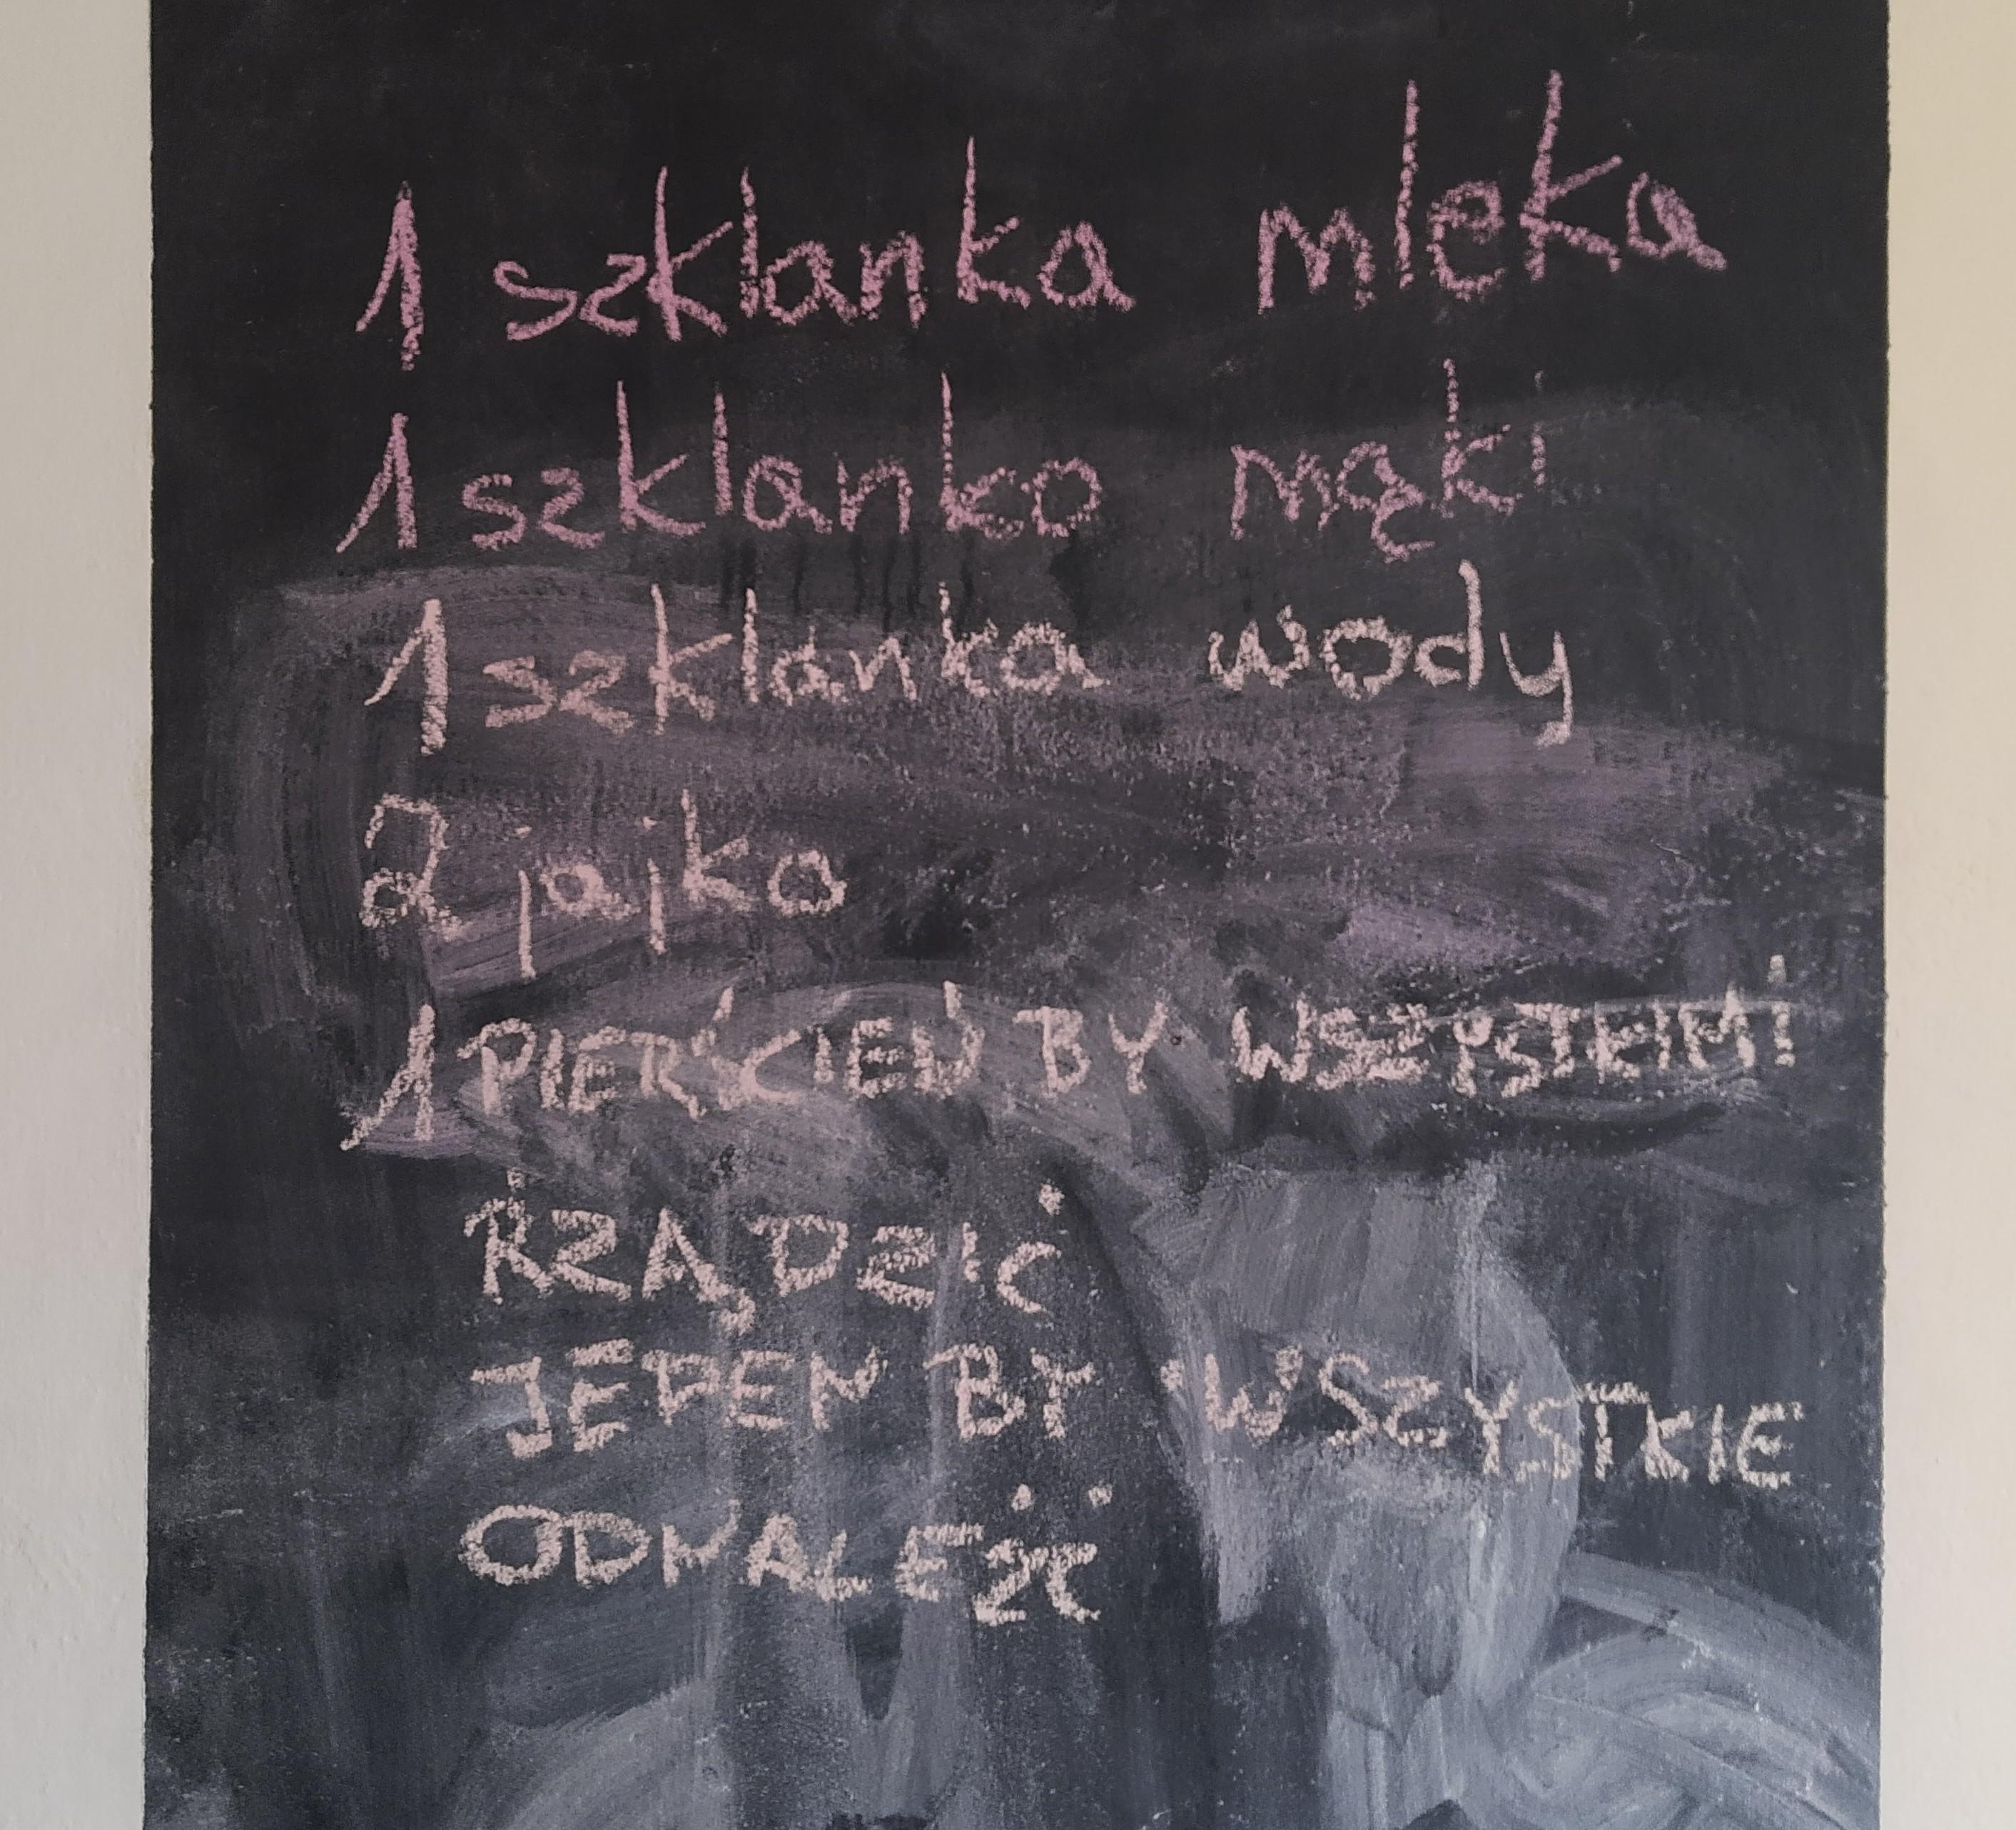 1 szklanka mleka
1 szklanka mąki
1 szklanka wody
2 jajka
1 PIERŚCIEŃ BY WSZYSTKIMI
RZĄDZIĆ
JEDEN BY WSZYSTKIE
ODNALEŹĆ